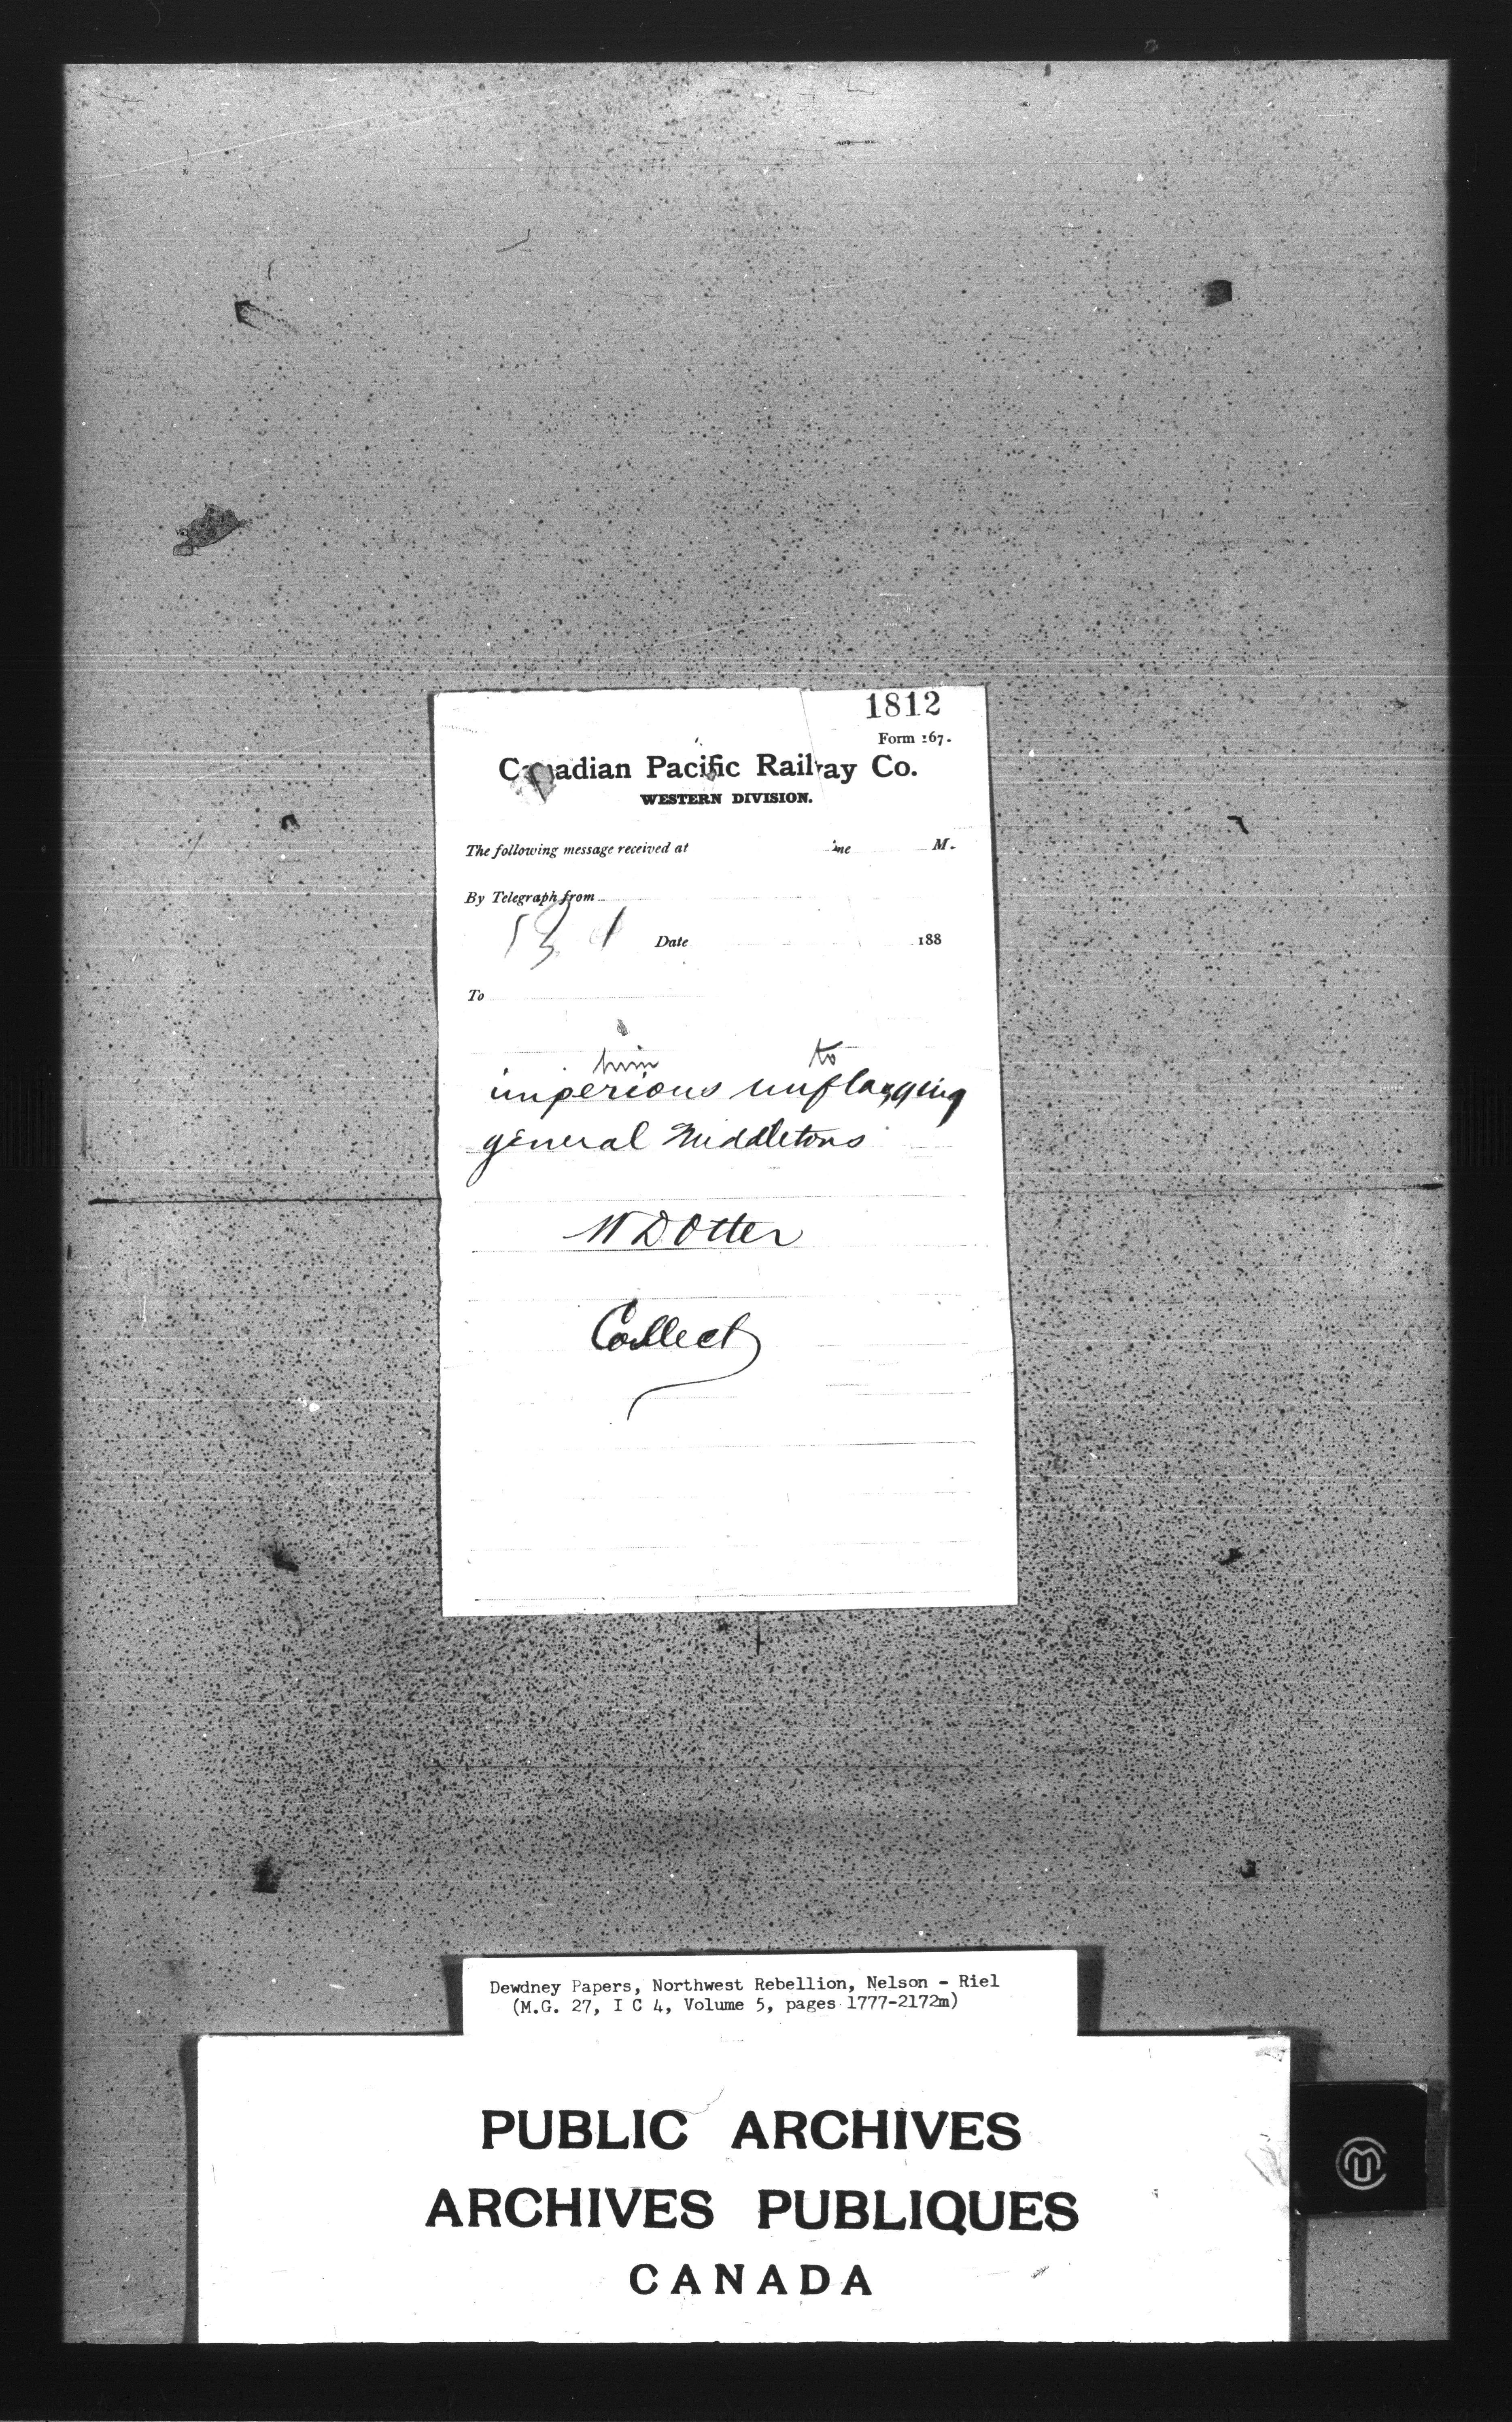 1812
Form 167.
Canadian Pacific Railway Co.
WESTERN DIVISION.
The following message received at ime M.
By Telegraph from
Date 188
To
him to
imperious unflagging
general Middletons
W D Otter
Collect
Dewdney Papers, Northwest Rebellion, Nelson - Riel
(M.G. 27, I C 4, Volume 5, pages 1777-2172m)
PUBLIC ARCHIVES
ARCHIVES PUBLIQUES
CANADA